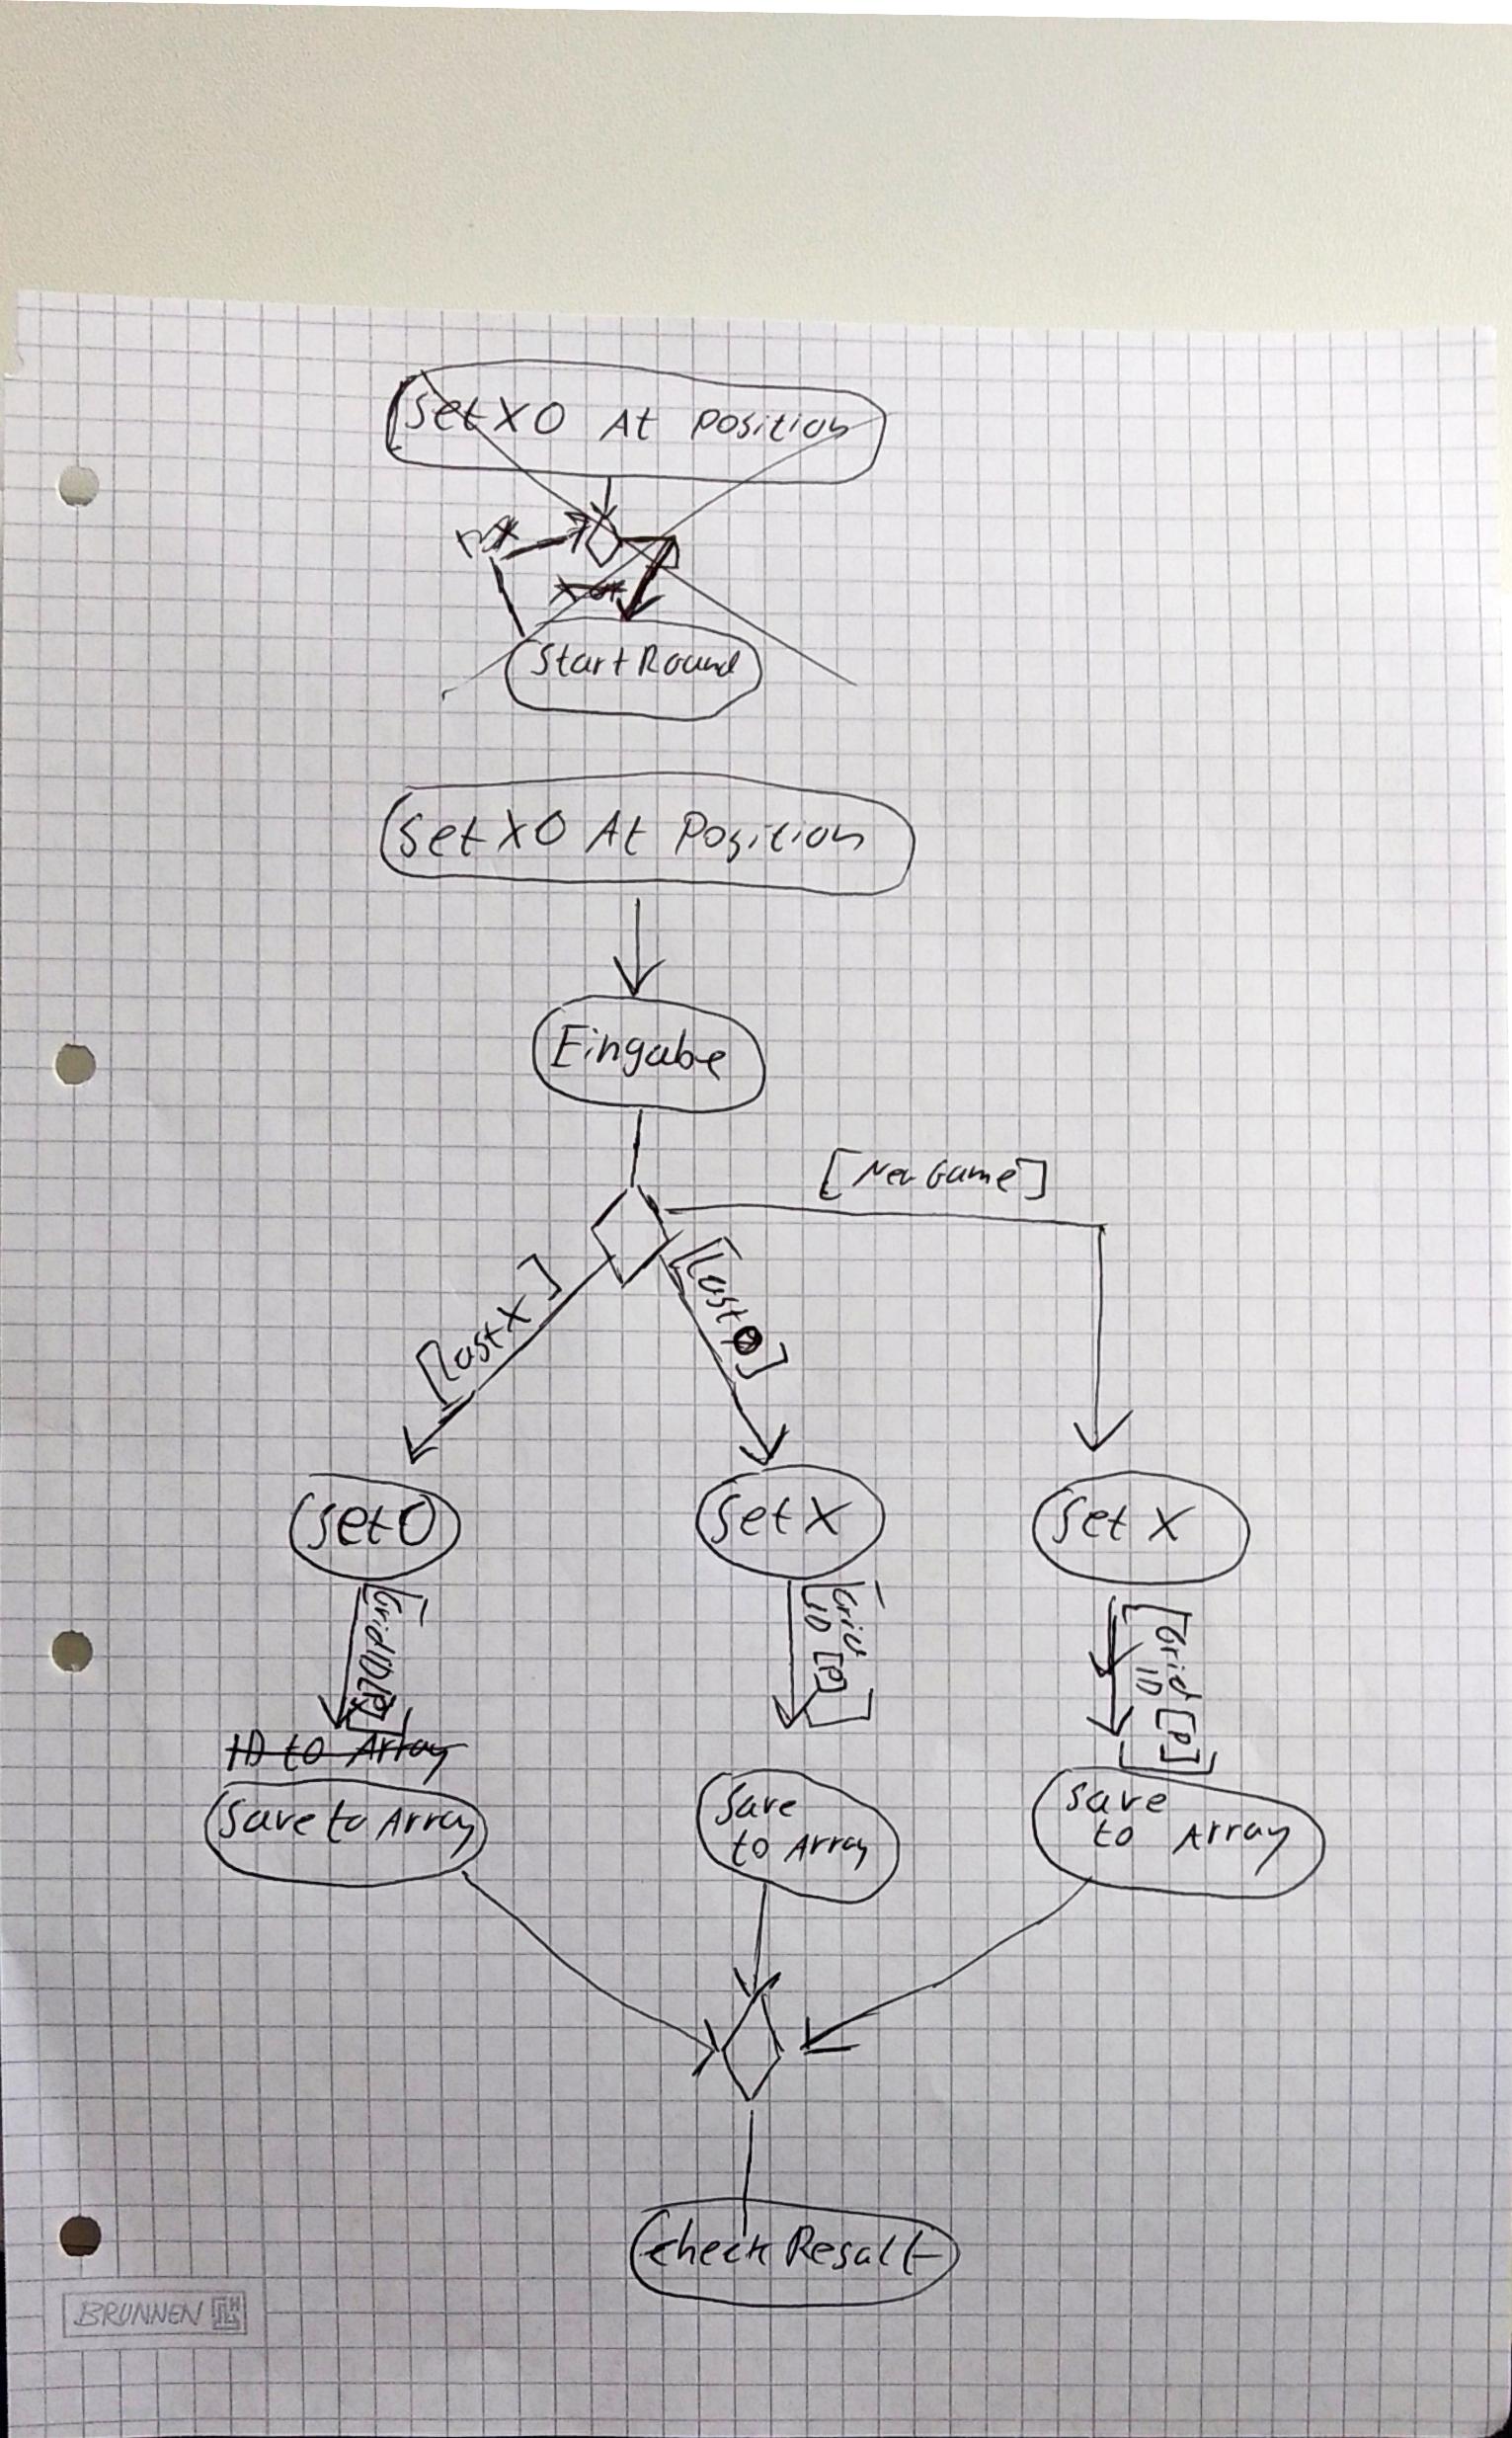 Set XO At Position
Start Round
Set XO At Position
Eingabe
[New Game]
[Last X]
[Last O]
Set O
Set X
Set X
[Grid ID [P]]
[Grid
ID [P]]
[Grid
ID [P]]
ID to Array
Save to Array
Save
to Array
Save
to Array
Check Result
BRUNNEN